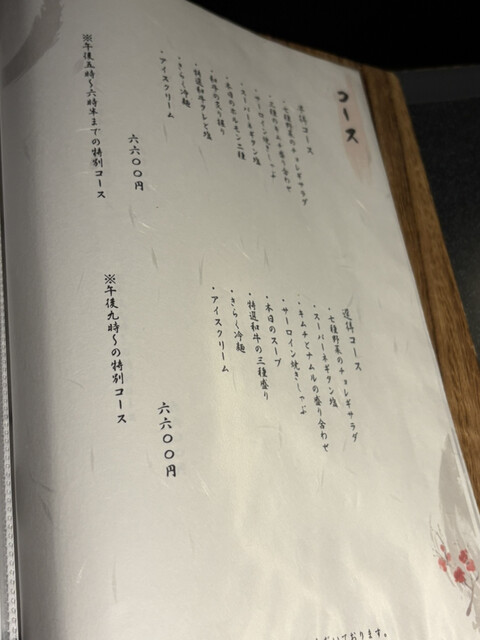 コース
コース
・七種野菜のチョレギサラダ
・三種のキムチ盛り合わせ
・サーロイン焼きしゃぶ
・スーパーネギタン塩
・本日のホルモン二種
・和牛の炙り握り
・特選和牛タレと塩
・きらく冷麺
・アイスクリーム
六六〇〇円
※午後五時〜六時半までの特別コース
コース
・七種野菜のチョレギサラダ
・スーパーネギタン塩
・キムチとナムルの盛り合わせ
・サーロイン焼きしゃぶ
・本日のスープ
・特選和牛の三種盛り
・きらく冷麺
・アイスクリーム
六六〇〇円
※午後九時〜の特別コース
ております。